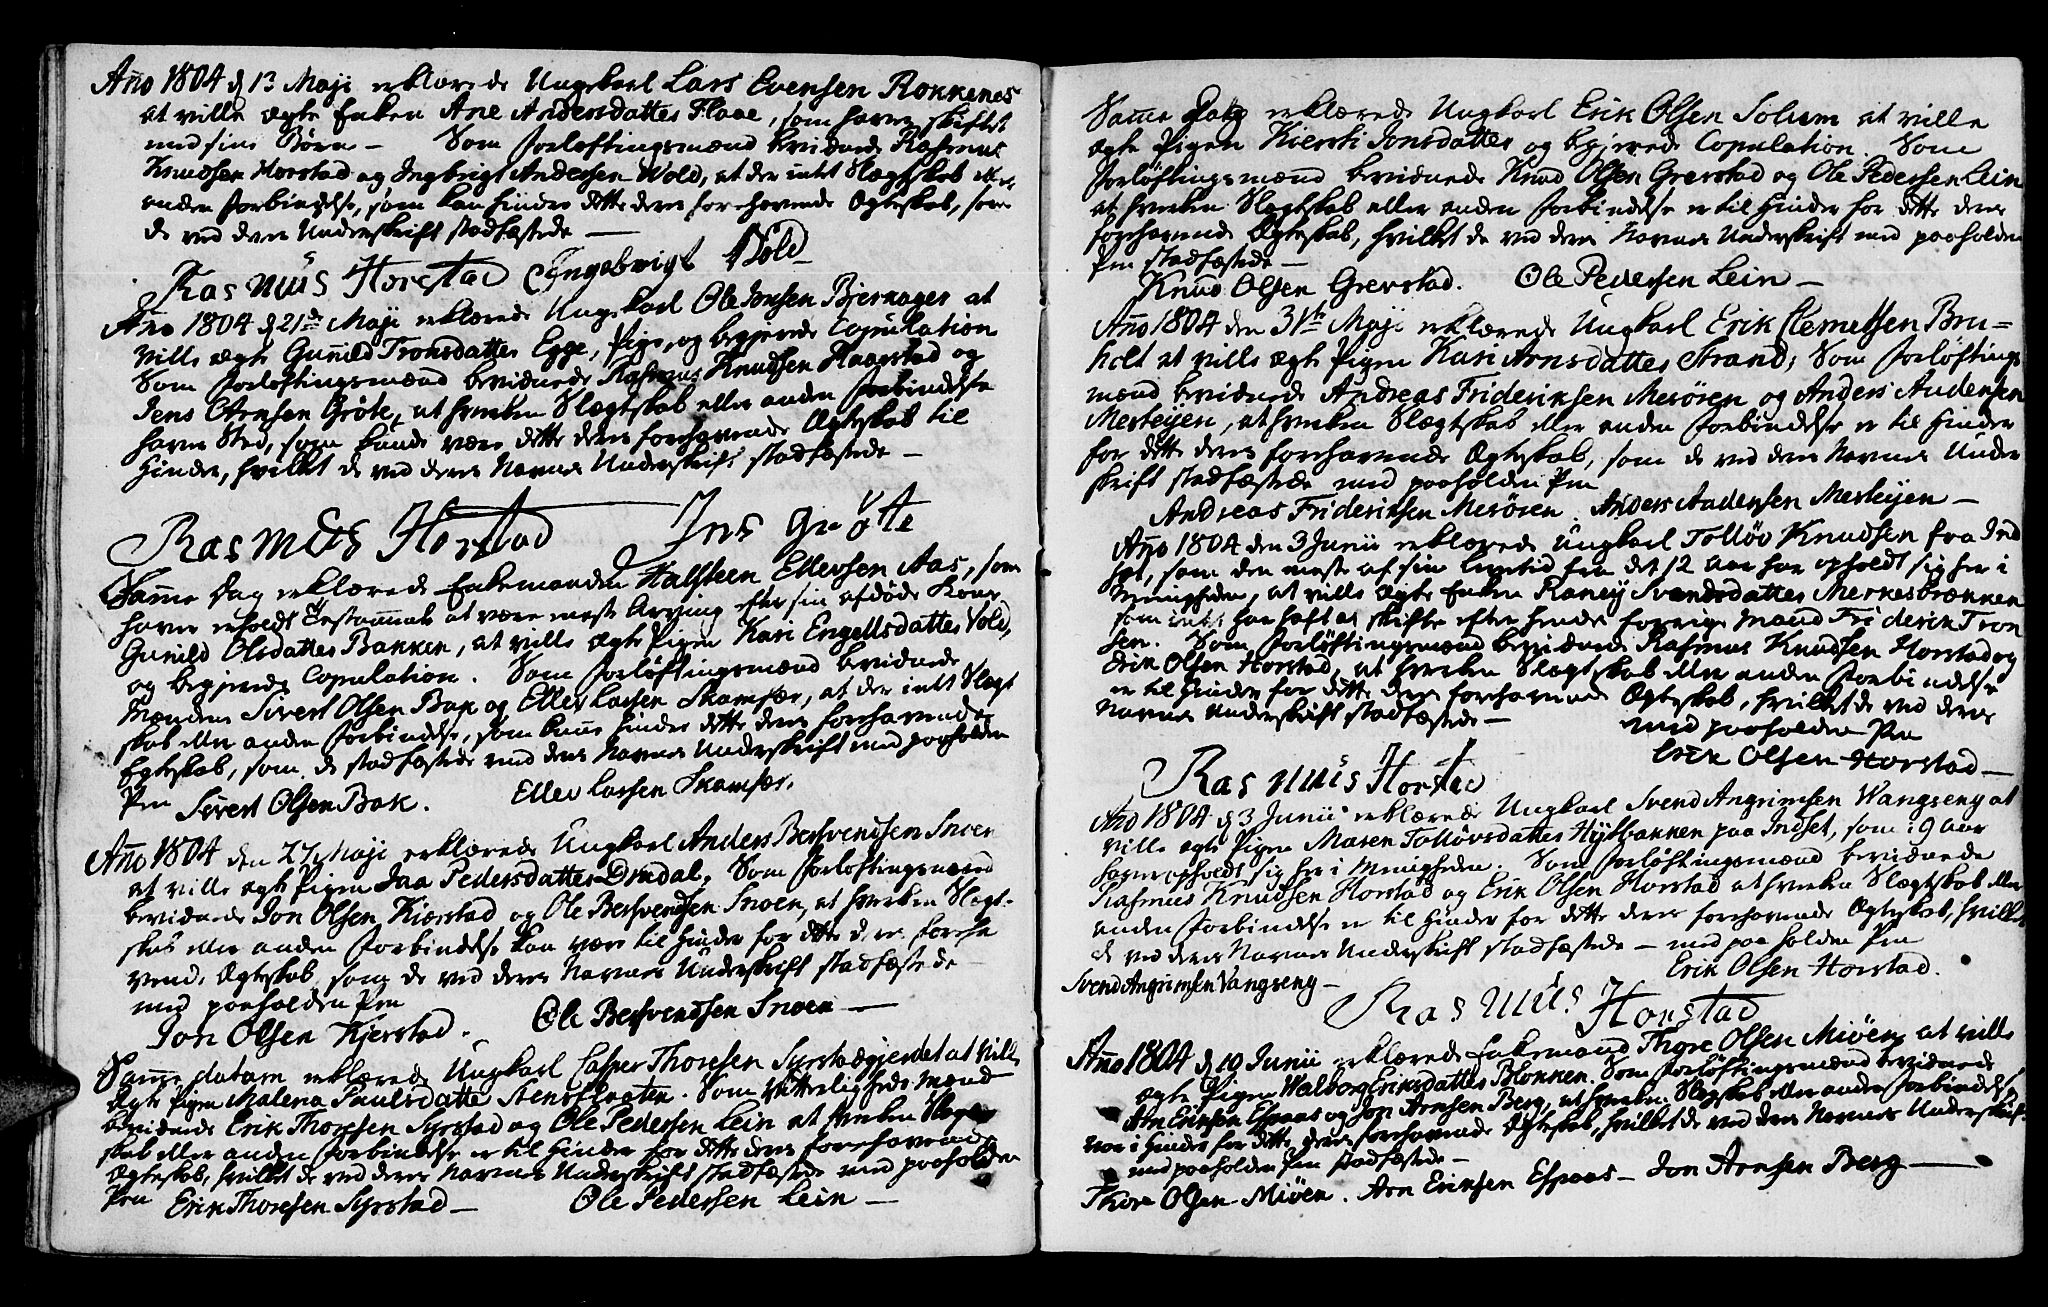 Año 1804 d 13 Maji erklærede Ungkarl Lars Evensen Rokkenes
at ville ægte Enken Ane Andersdatter Flaae, som haver skiftet
med sine Børn – Som Forløftingsmænd bevidnede Rasmus
Knudsen Horstad og Ingbrigt Andersen Wold, at der intet Slægtskab eller
anden Forbindelse, som kan hindre dette deres forehavende Ægteskab, som
de ved deres Underskrift stadfæstede —
Rasmus Horstad Engebrigt Wold
Año 1804 d 21de Maji erklærede Ungkarl Ole Jonsen Bjerkager at
ville ægte Gunild Tronsdatter Egge, Pige, og begjerede Copulation
Som Forløftingsmænd bevidnede Rasmus Knudsen Haagstad og
Jens Arnsen Grøte, at hverken Slægtskab eller anden Forbindelse
haver Sted, som kunde være dette deres forehavende Ægteskab til
Hinder, hvilket de ved deres Navnes Underskrift stadfæstede —
Rasmus Horstad Jens Grøtte
Samme Dag erklærede Enkemanden Halsteen Ellevsen Aas, som
haver erholdt Testamente at være næste Arving efter sin afdøde Kone
Gunild Olsdatter Bakken, at ville ægte Pigen Kari Engellsdatter Vold,
og begjerede Copulation. Som Forløftingsmænd bevidnede
Mændene Sivert Olsen Bak og Ellev Larsen Skamfer, at der intet Slægt
skab eller anden Forbindelse, som kunne hindre dette deres forehavende
Egteskab, som de stadfæstede med deres Navnes Underskrift med paaholden
Pen Sivert Olsen Bak. Ellev Larsen Skamfer.
Año 1804 den 27 Maji erklærede Ungkarl Anders Besvendsen Snoen
at ville ægte Pigen Jaa Pedersdatter Drudal. Som Forløftingsmænd
bevidnede Jon Olsen Kierstad og Ole Besvendsen Snoen, at hverken Slægt-
skab eller anden Forbindelse kan være til Hinder for dette deres foreha
vende Ægteskab, som de ved deres Navnes Underskrift stadfæstede
med paaholden Pen
Jon Olsen Kjerstad. Ole Besvendsen Snoen —
Samme datum erklærede Ungkarl Casper Thoresen Syrstadgjerdet at ville
ægte Pigen Malena Paulsdatter Stensfloaten. Som Vitterligheds Mænd
bevidnede Erik Thoresen Syrstad og Ole Pedersen Lein at hverken Slægt
skab eller anden Forbindelse er til Hinder for dette deres forehavende
Ægteskab, hvilket de ved deres Navnes Underskrift stadfæstede med paaholden
Pen Erik Thoresen Syrstad — Ole Pedersen Lein —
Samme Dag erklærede Ungkarl Erik Olsen Solum at ville
ægte Pigen Kiersti Jonsdatter og begjerede Copulation. Som
Forløftingsmænd bevidnede Knud Olsen Grevstad og Ole Pedersen Lein
at hverken Slægtskab eller anden Forbindelse er til Hinder for dette deres
forehavende Ægteskab, hvilket de ved deres Navnes Underskrift med paaholden
Pen stadfæstede —
Knud Olsen Grevstad. Ole Pedersen Lein —
Año 1804 den 31te Maji erklærede Ungkarl Erik Clemetsen Bru=
holt at ville ægte Pigen Kari Arnsdatter Strand; Som Forløftings
mænd bevidnede Andreas Frideriksen Merøren og Anders Andersen
Mesleijen, at hverken Slægtskab eller anden Forbindelse er til Hinder
for dette deres forehavende Ægteskab, som de ved deres Navnes Under
skrift stadfæstede med paaholden Pen
Andreas Frideriksen Merøren. Anders Andersen Mesleijen —
Año 1804 den 3 Junii erklærede Ungkarl Tolløv Knudsen fra Ind
set, som den meste af sin Levetid fra det 12 Aar har opholdt sig her i
Menigheden, at ville ægte Enken Raney Svendsdatter Merkesbrækken
som intet har haft at skifte efter hendes forrige Mand Friderik Tron
sen. Som Forløftingsmænd bevidnede Rasmus Knudsen Horstad og
Erik Olsen Horstad, at hverken Slægtskab eller anden Forbindelse
er til Hinder for dette deres forehavende Ægteskab, hvilket de ved deres
Navnes Underskrift stadfæstede — med paaholden Pen
Erik Olsen Horstad —
Rasmus Horstad
Año 1804 d 3 Junii erklærede Ungkarl Svend Angrimsen Wangseng at
ville ægte Pigen Maren Tolløvsdatter Hytbakken paa Indset, som i 9 Aar
haver opholdt sig her i Menigheden. Som Forløftingsmænd bevidnede
Rasmus Knudsen Horstad og Erik Olsen Horstad at hverken Slægtskab eller
anden Forbindelse er til Hinder for dette deres forehavende Ægteskab, hvilket
de ved deres Navnes Underskrift stadfæstede — med paaholden Pen
Erik Olsen Horstad.
Svend Angrimsen Vangseng —
Rasmus Horstad
Año 1804 d 10 Junii erklærede Enkemand Thore Olsen Miøen at ville
ægte Pigen Walborg Eriksdatter Blokken. Som Forløftingsmænd bevidnede
Arn Eriksen Espaas og Jon Arnsen Berg, at hverken Slægtskab eller anden Forbindelse
var i Hinder for dette deres forehavende Ægteskab, hvilket de ved deres Navnes Underskrift
med paaholden Pen stadfæstede —
Thore Olsen Miøen. Arn Eriksen Espaas — Jon Arnsen Berg —